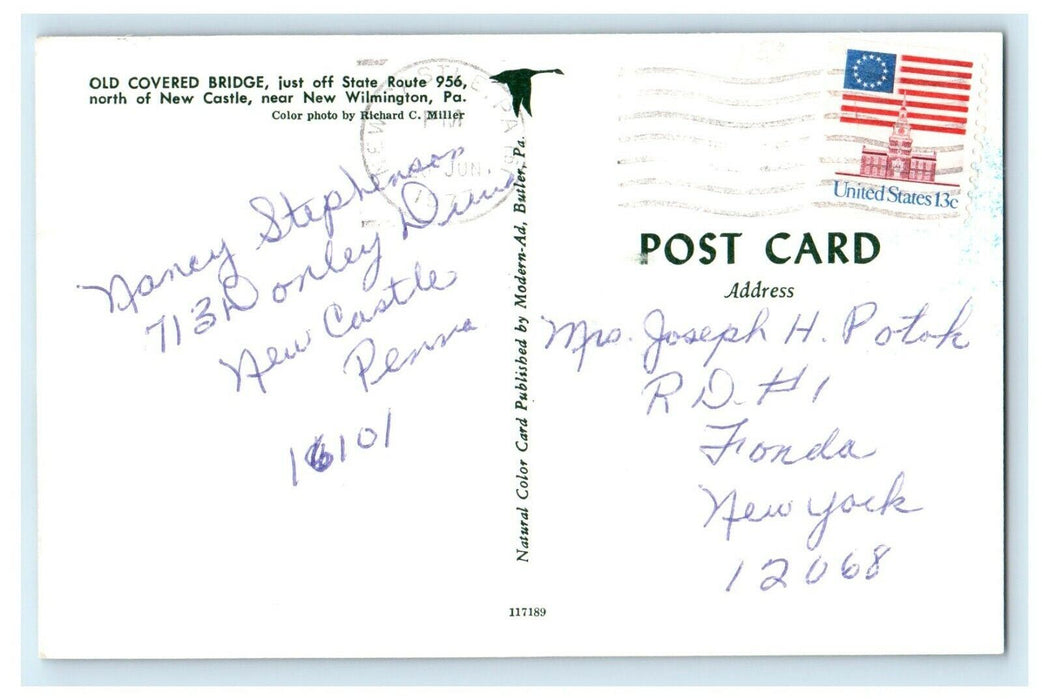 OLD COVERED BRIDGE, just off State Route 956,
north of New Castle, near New Wilmington, Pa.
Color photo by Richard C. Miller
PM
JUN
Nancy Stephenson
713 Donley
New Castle
Penna
16101
Natural Color Card Published by Modern-Ad, Butler, Pa.
United States 13c
POST CARD
Address
Mrs. Joseph H. Potok
R D. #1
Fonda
New York
12068
117189